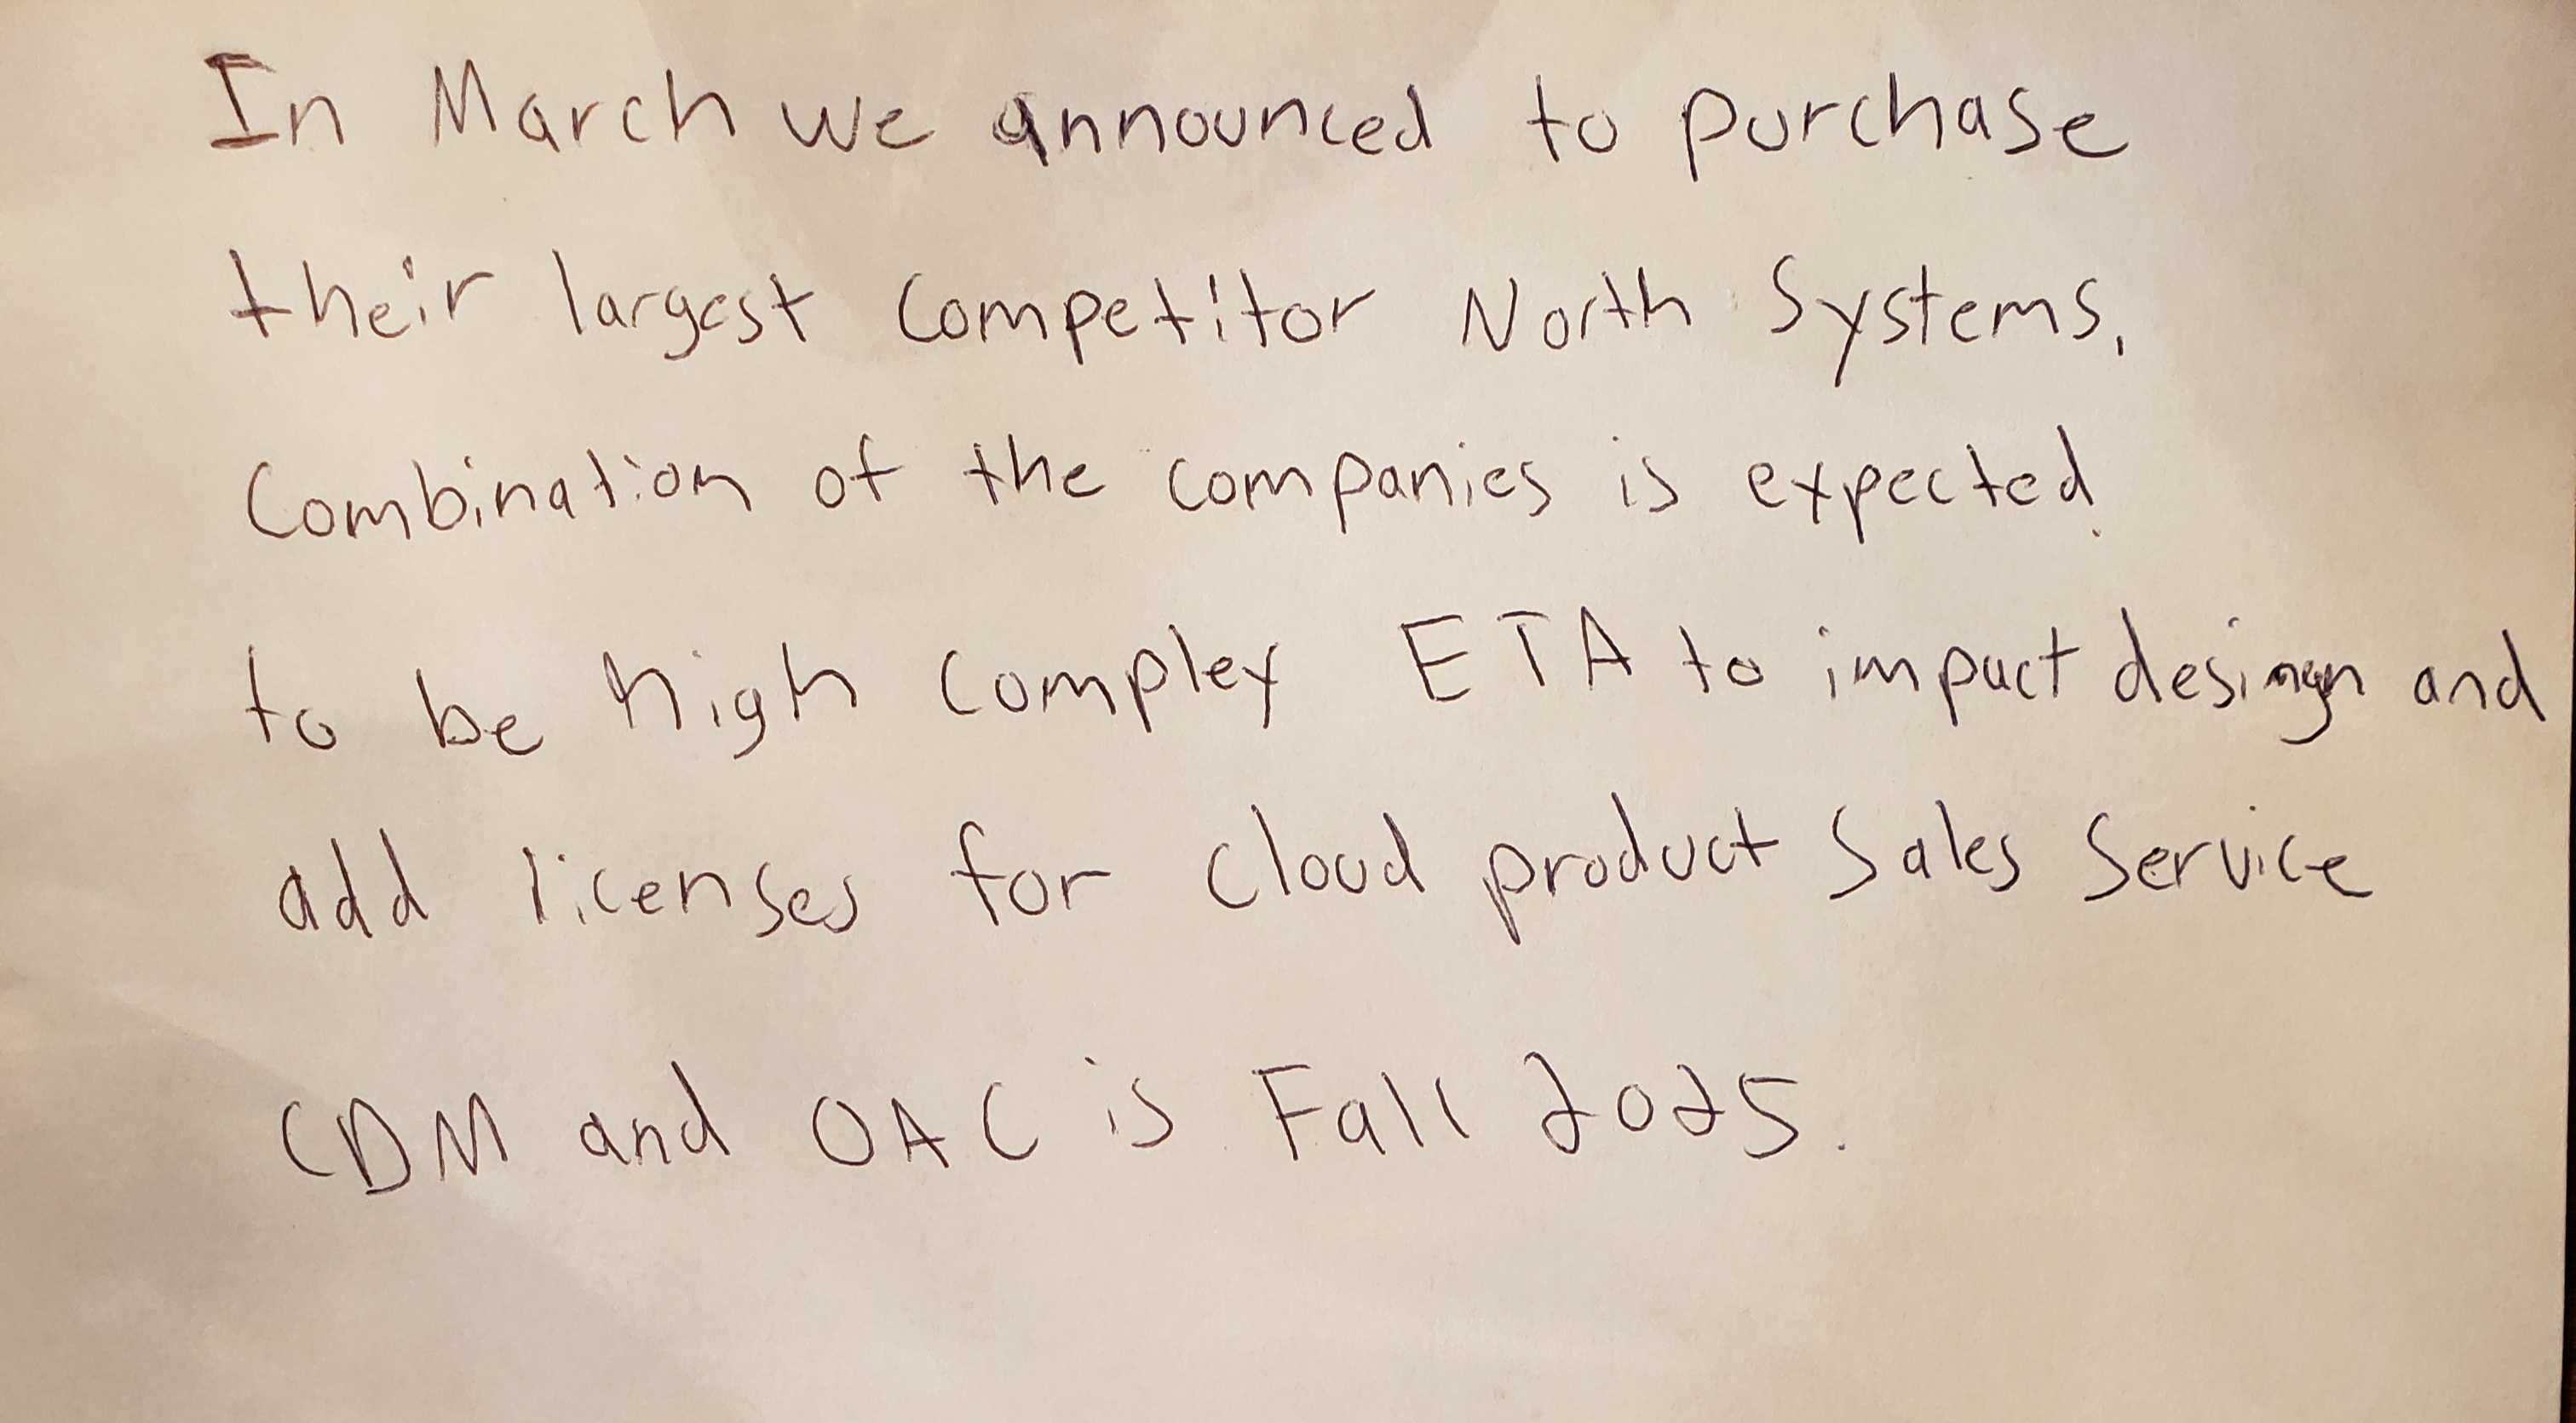 In March we announced to purchase
their largest competitor North Systems,
Combination of the companies is expected.
to be high complex ETA to impact design and
add licenses for cloud product Sales Service
CDM and OAC is Fall 2025.